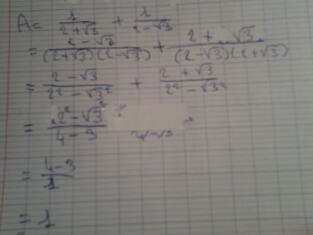 A = 1/(2+√3) + 1/(2-√3)
= (2-√3)/((2+√3)(2-√3)) + (2+√3)/((2-√3)(2+√3))
= (2-√3)/(2²-√3²) + (2+√3)/(2²-√3²)
= (2²-√3²)/(4-3)
= (4-3)/1
= 1
=